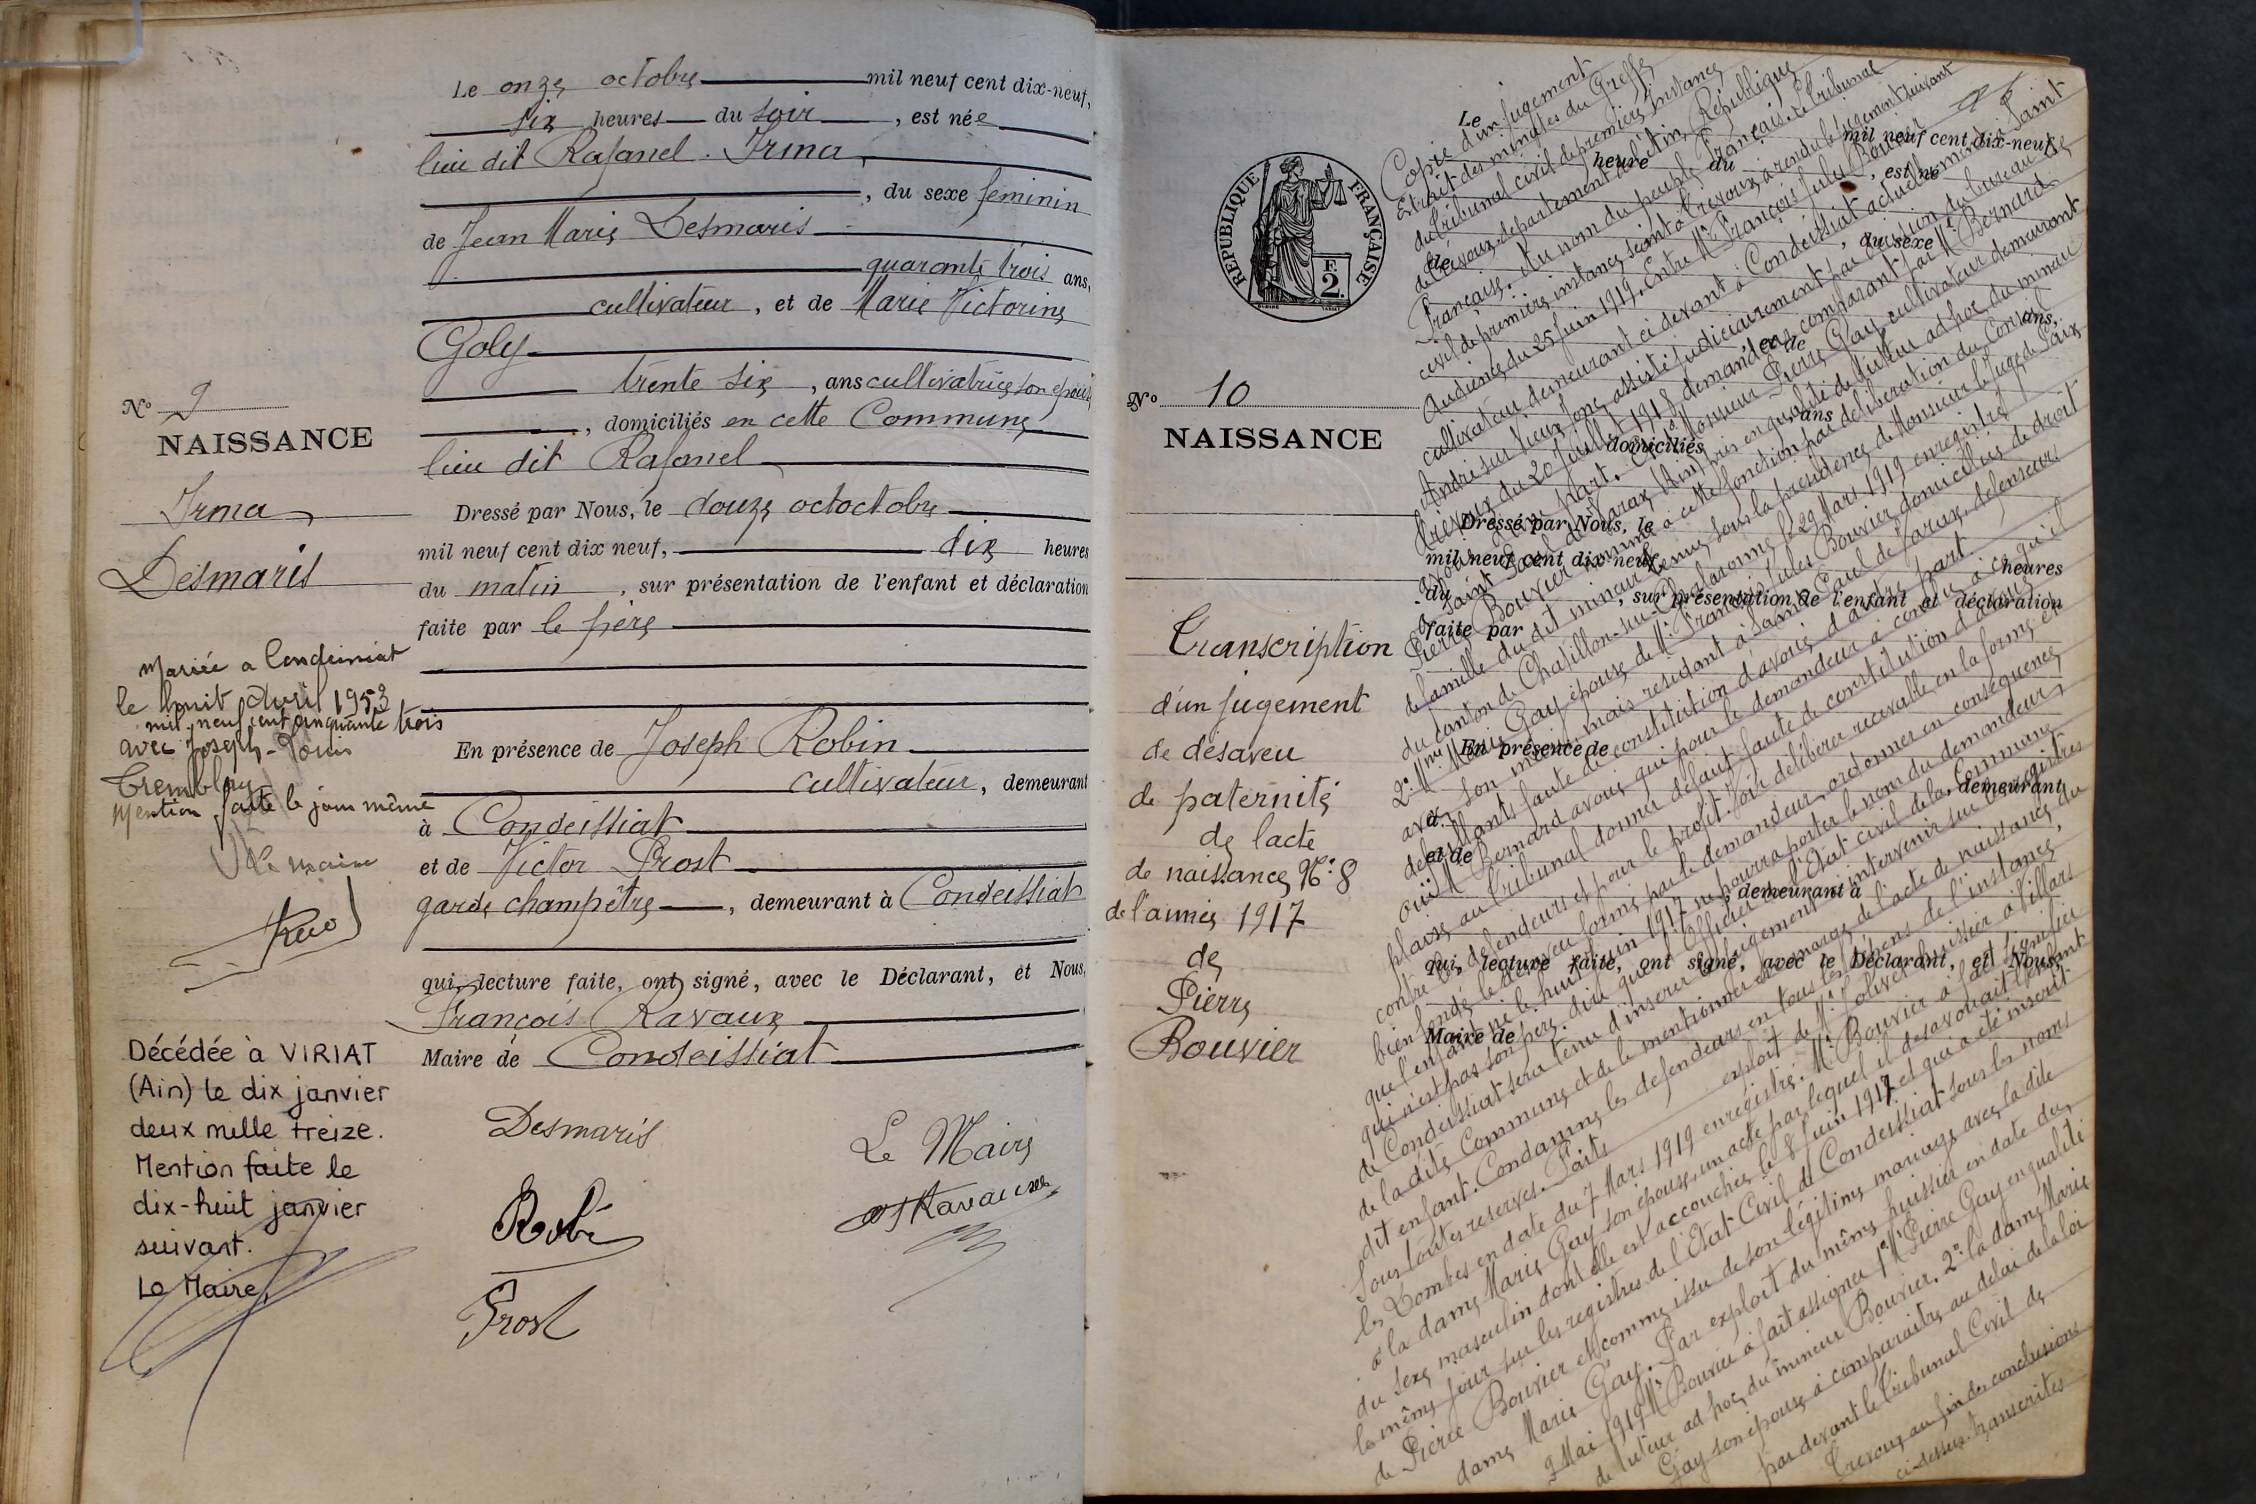 Le onze octobre mil neuf cent dix-neuf,
six heures du soir, est née
lieu dit Rafanel. Irma,
, du sexe féminin
de Jean Marie Desmaris
quarante trois ans,
cultivateur, et de Marie Victorine
Goly
trente six, ans cultivatrice son épouse
, domiciliés en cette Commune
lieu dit Rafanel
Dressé par Nous, le douze octoctobre
mil neuf cent dix neuf, dix heures
du matin, sur présentation de l'enfant et déclaration
faite par le père
En présence de Joseph Robin
cultivateur, demeurant
à Condeissiat
et de Victor Prost
garde champêtre, demeurant à Condeissiat
qui, lecture faite, ont signé, avec le Déclarant, et Nous,
François Ravaux
Maire de Condeissiat
Desmaris
Le Maire
Robin
Ravaux
Prost
No 9
NAISSANCE
Irma
Desmaris
Mariée a Condeissiat
le huit Avril 1953
mil neuf cent cinquante trois
avec Joseph-Louis
Tremblay
Mention faite le jour même
Le maire
Décédée à VIRIAT
(Ain) le dix janvier
deux mille treize.
Mention faite le
dix-huit janvier
suivant.
Le Maire,
No 10
NAISSANCE
Transcription
d'un jugement
de désaveu
de paternité
de lacte
de naissance No 8
de l'année 1917
de
Pierre
Bouvier
RÉPUBLIQUE FRANÇAISE
F.
2.
Le mil neuf cent dix-neuf,
heure du , est né
, du sexe
de
ans,
et de
ans
domiciliés
Dressé par Nous, le
mil neuf cent dix neuf, heures
du , sur présentation de l'enfant et déclaration
faite par
En présence de
demeurant
à
et de
, demeurant à
qui, lecture faite, ont signé, avec le Déclarant, et Nous,
Maire de
Copie d'un jugement
Extrait des minutes du Greffe
du Tribunal civil de premiere instance
de Trevoux, departement de l'Ain, République
Française. Au nom du peuple Français. Le Tribunal
civil de premiere instance séant à Trevoux, a rendu le jugement suivant
Audience du 25 juin 1919. Entre Mr François Jules Bouvier
cultivateur demeurant ci devant à Condeissiat actuellement à Saint
André sur Vieux Jonc, assisté judiciairement par décision du bureau de
Trevoux du 20 Juillet 1918 demandeur comparant par Me Bernard
avoué d'une part. Et 1º Monsieur Pierre Gay, cultivateur demeurant
à Saint Paul de Varax (Ain) pris en qualité de tuteur ad hoc du mineur
Pierre Bouvier nommé à cette fonction par délibération du Conseil
de famille du dit mineur tenue sous la présidence de Monsieur le juge de Paix
du canton de Chatillon-sur-Chalaronne le 29 Mars 1919 enregistré
2º Mme Marie Gay épouse de Mr François Jules Bouvier domiciliée de droit
avec son mari, mais residant à Saint Paul de Varax, défenseurs
defaillants faute de constitution d'avoué d'autre part
Ouï Me Bernard avoué qui pour le demandeur a conclu à ce qu'il
plaise au Tribunal donner défaut faute de constitution d'avoué
contre les défendeurs et pour le profit. Voir déliberer recevable en la forme et
bien fondé le désaveu formé par le demandeur, ordonner en conséquence
que l'enfant né le huit juin 1917 ne pourra porter le nom du demandeur,
qui n'est pas son père. dire que l'officier de l'Etat civil de la Commune
de Condeissiat sera tenu d'inserer le jugement à intervenir sur les registres
de la dite Commune et de le mentionner en marge de l'acte de naissance du
dit enfant. Condamne les défendeurs en tous les dépens de l'instance,
Sous toutes reserves. Faits exploit de Me Jolivet huissier à Villars
les Dombes en date du 7 Mars 1919 enregistré. Mr Bouvier à fait signifier
à la dame Marie Gay son épouse, un acte par lequel il desavouait l'enfant
du sexe masculin dont elle est accouchée le 8 Juin 1917 et qui a été inscrit
le même jour sur les registres de l'Etat Civil de Condeissiat sous les noms
de Pierre Bouvier et comme issu de son légitime mariage avec la dite
dame Marie Gay. Par exploit du même huissier en date du
9 Mai 1919 Mr Bouvier à fait assigner 1º Mr Pierre Gay en qualité
de tuteur ad hoc du mineur Bouvier. 2º la dame Marie
Gay son épouse à comparaitre au délai de la loi
par devant le Tribunal Civil de
Trevoux aux fin des conclusions
ci-dessus transcrites